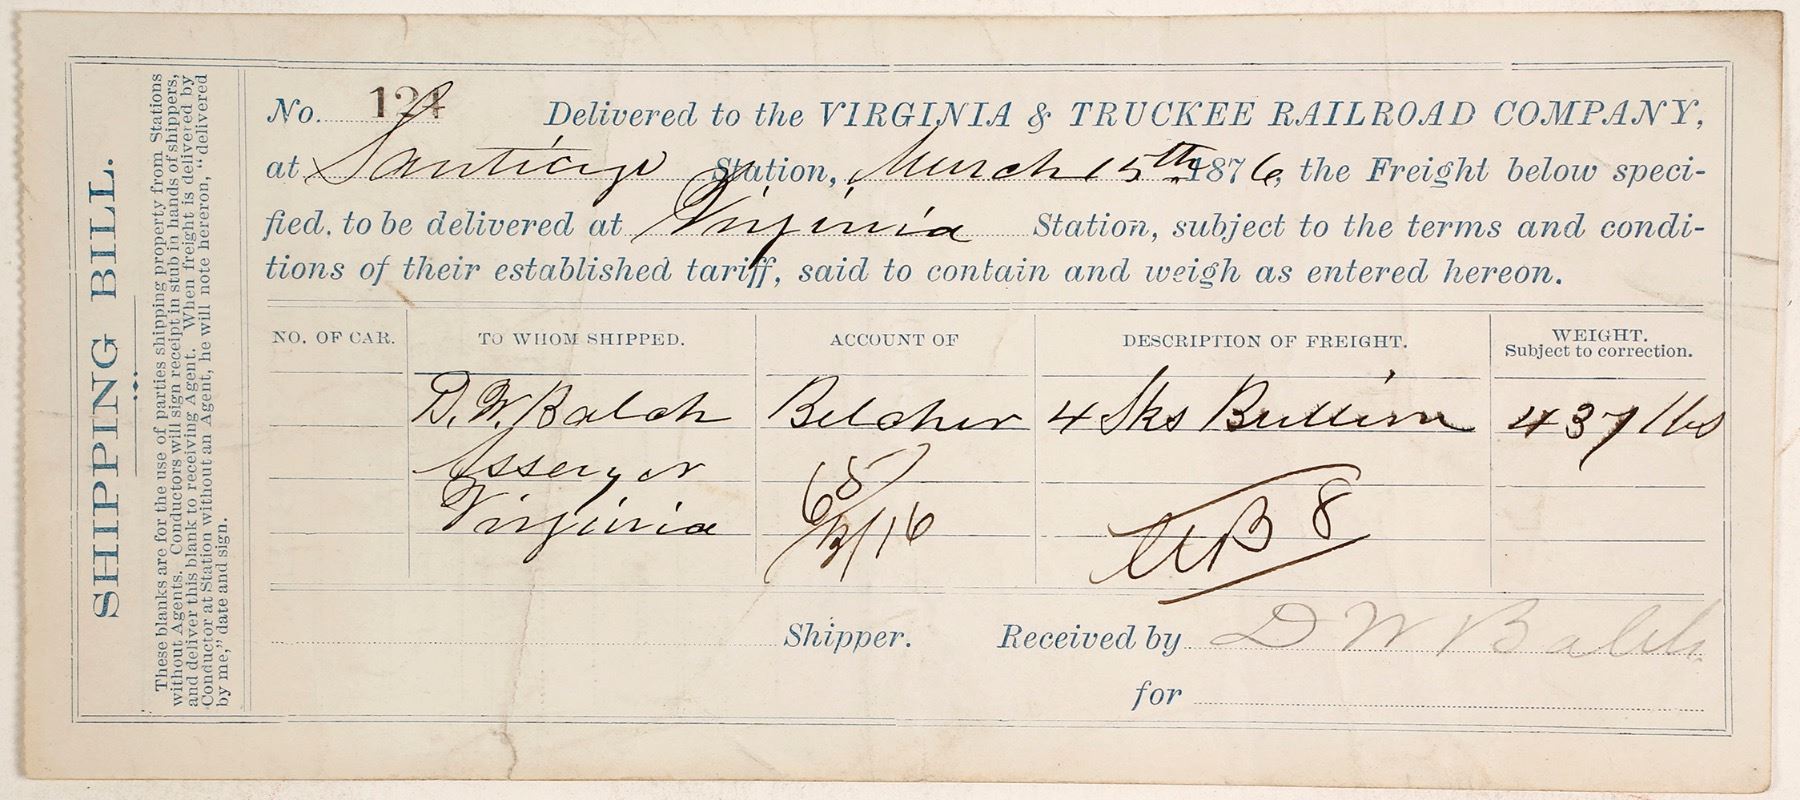 SHIPPING BILL.
These blanks are for the use of parties shipping property from Stations
without Agents. Conductors will sign receipt in stub in hands of shippers,
and deliver this blank to receiving Agent. When freight is delivered by
Conductor at Station without an Agent, he will note hereron, "delivered
by me," date and sign.
No. 124 Delivered to the VIRGINIA & TRUCKEE RAILROAD COMPANY,
at Santiago Station, March 15th 1876, the Freight below speci-
fied, to be delivered at Virginia Station, subject to the terms and condi-
tions of their established tariff, said to contain and weigh as entered hereon.
NO. OF CAR. TO WHOM SHIPPED. ACCOUNT OF DESCRIPTION OF FREIGHT. WEIGHT.
Subject to correction.
D. W. Balch Belcher 4 Sks Bullion 437 lbs
Assayer
Virginia
WB 8
Shipper. Received by D W Balch
for